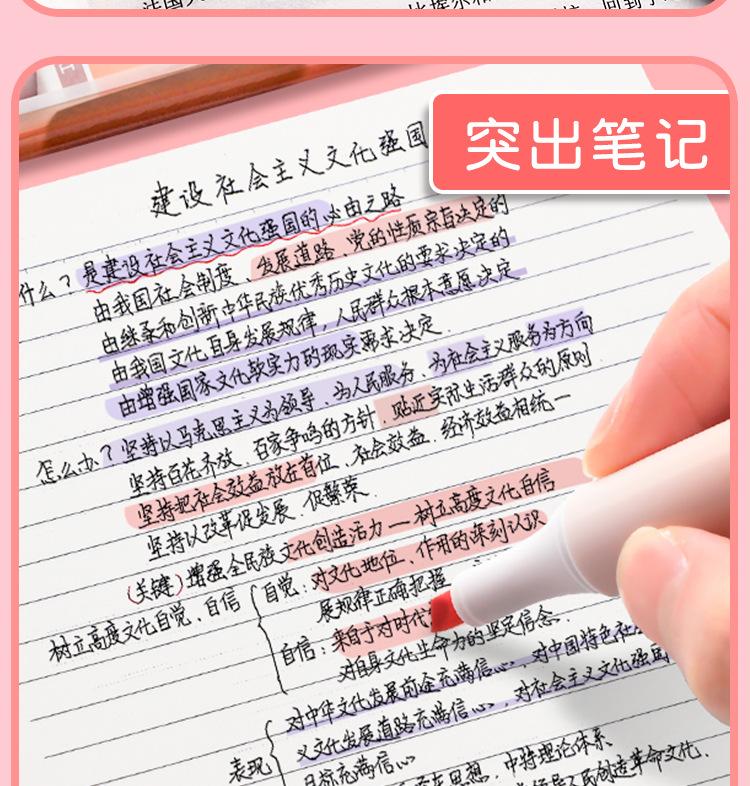 突出笔记
建设社会主义文化强国
什么？是建设社会主义文化强国的必由之路
由我国社会制度、发展道路、党的性质宗旨决定的
由继承和创新中华民族优秀历史文化的要求决定的
由我国文化自身发展规律，人民群众根本意愿决定
由增强国家文化软实力的现实要求决定.
怎么办？坚持以马克思主义为领导、为人民服务、为社会主义服务为方向
坚持百花齐放、百家争鸣的方针.贴近实际生活群众的原则
坚持把社会效益放在首位、社会效益、经济效益相统一
坚持以改革促发展、促繁荣.
(关键)增强全民族文化创造活力—树立高度文化自信
树立高度文化自觉、自信
自觉：对文化地位、作用的深刻认识
展规律正确把握
自信：来自于对时代
对自身文化生命力的坚定信念.
表现
对中华文化发展前途充满信心，对中国特色社
义文化发展道路充满信心，对社会主义文化强国
目标充满信心
思想，中特理论体系
人民创造革命文化.